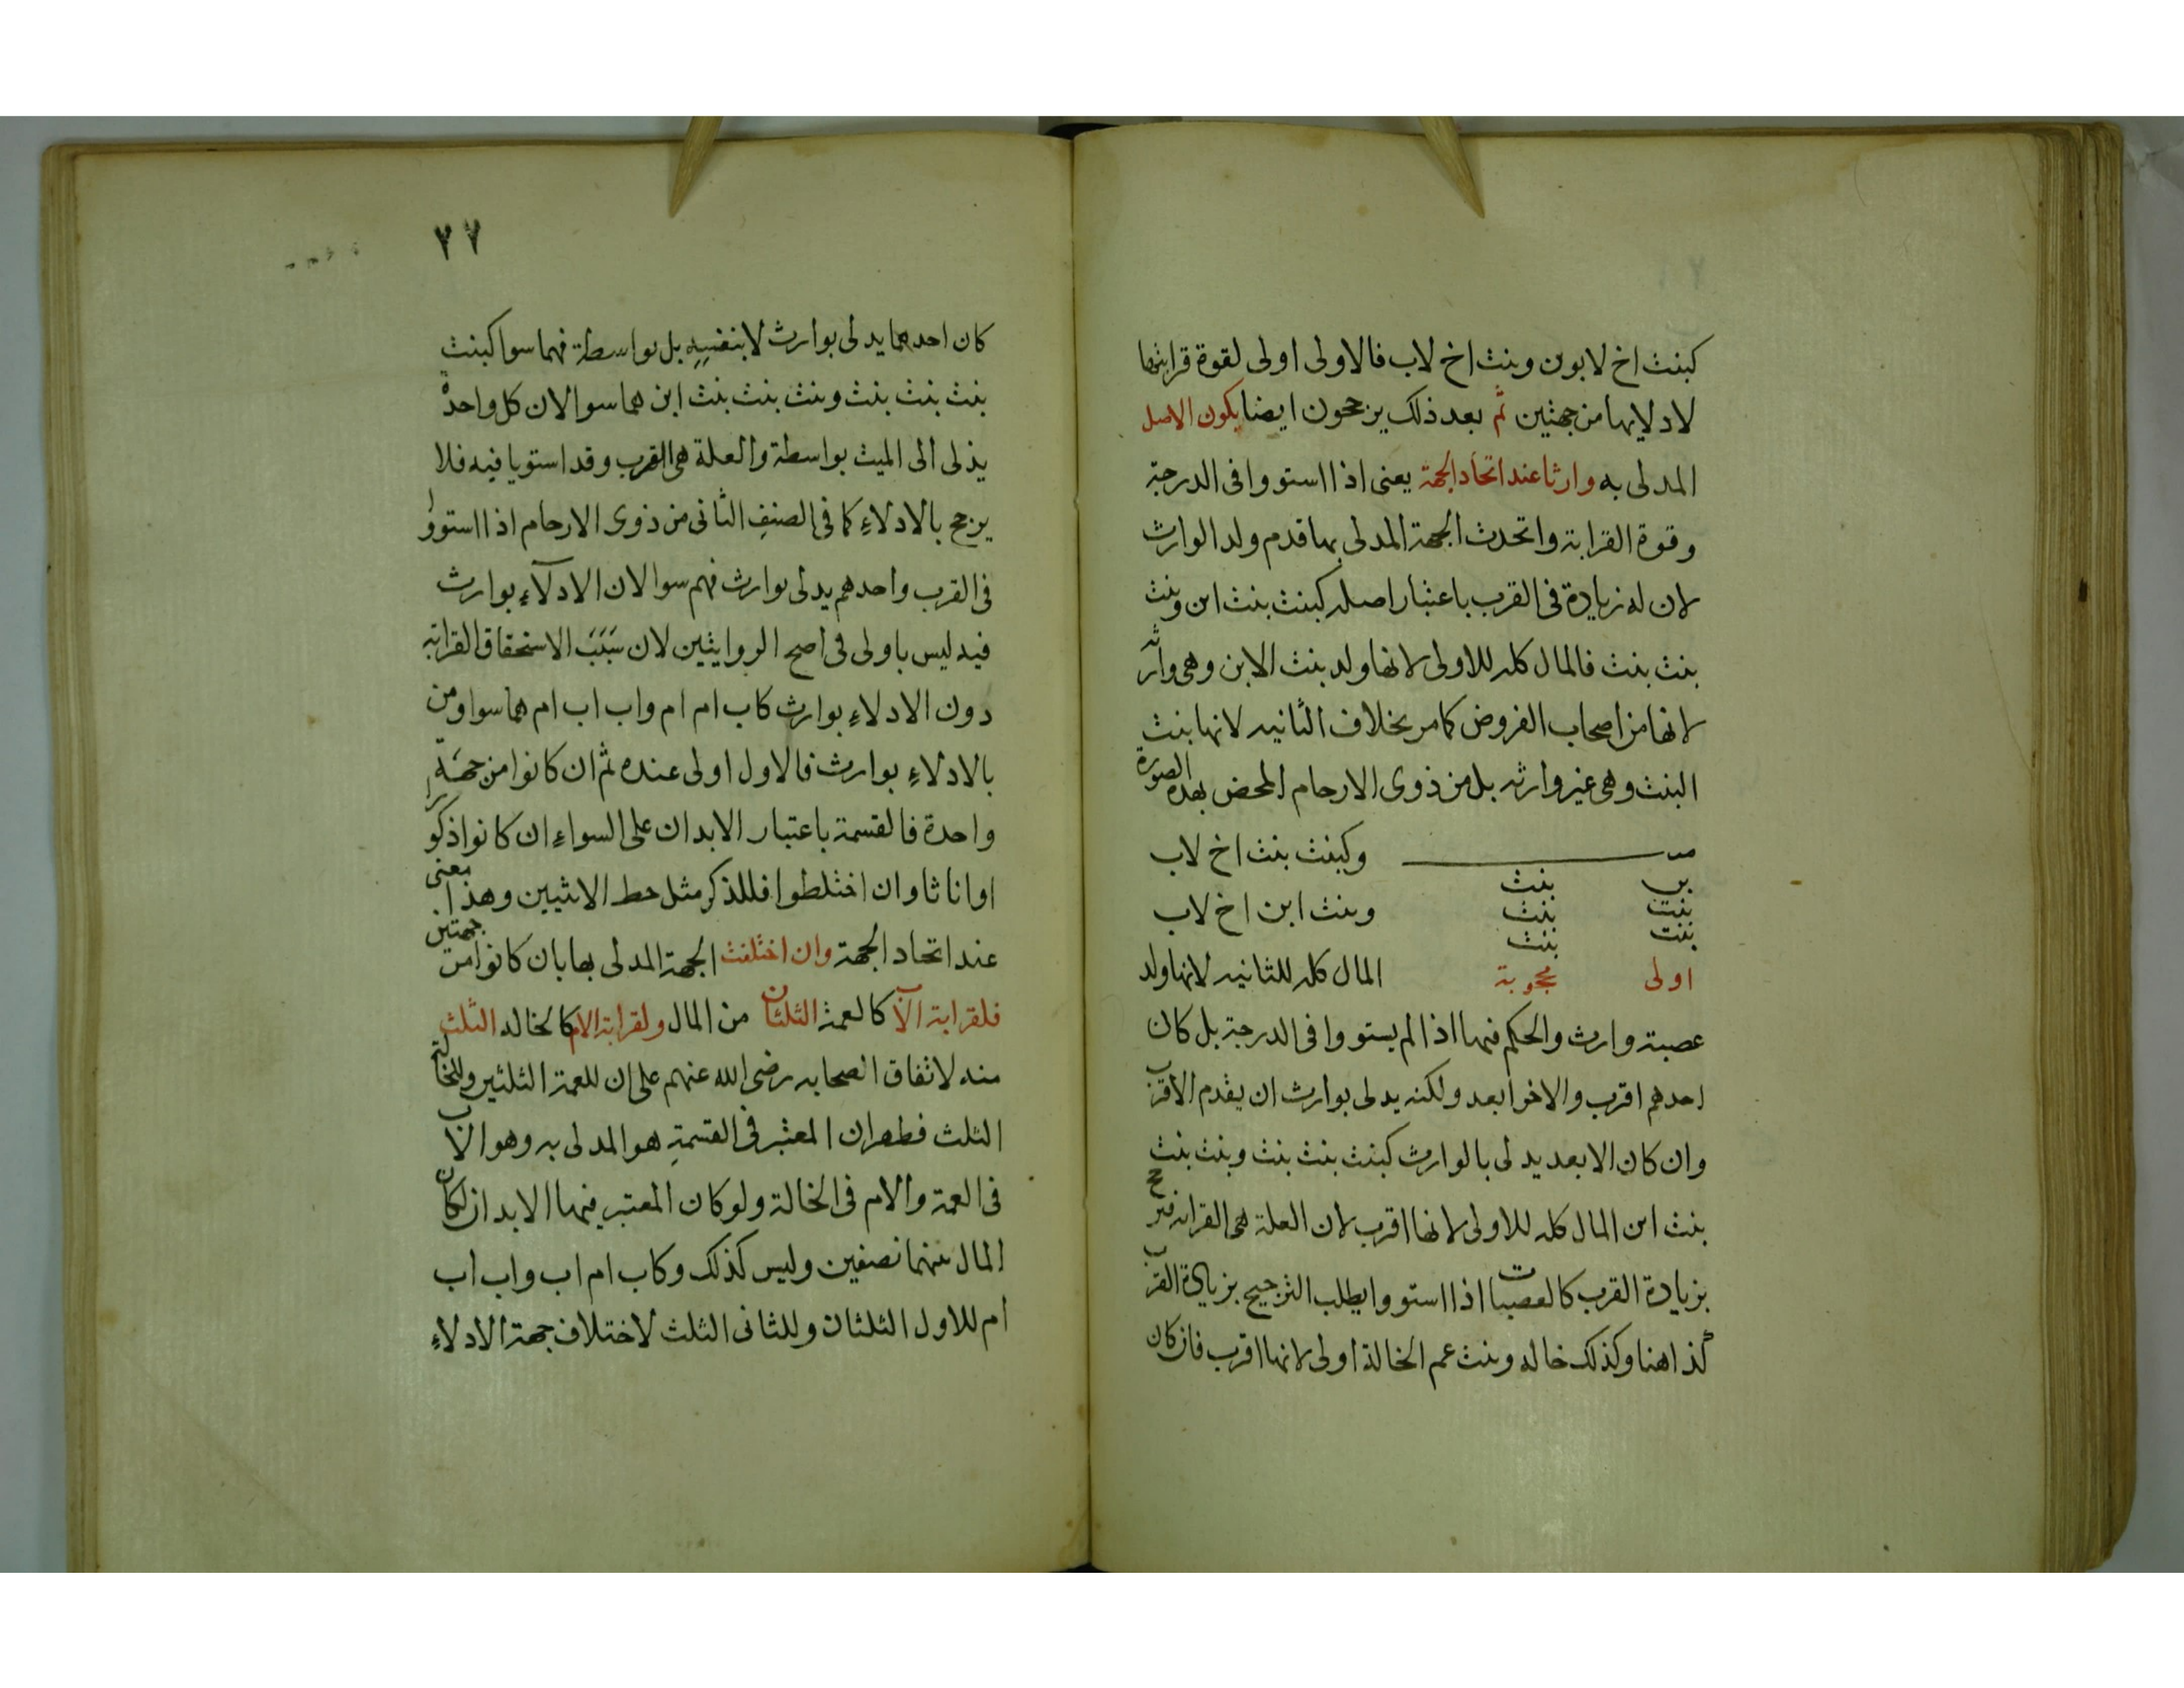 كبنت اخ لابوين وبنت اخ لاب فالاولى اولى لقوة قرابتها
لادلايها من جهتين ثم بعد ذلك يرجحون ايضا بكون الاصل
المدلى به وارثا عند اتحاد الجهة يعنى اذا استووا فى الدرجة
وقوة القرابة واتحدت الجهة المدلى بها قدم ولد الوارث
لان له زيادة فى القرب باعتبار اصله كبنت بنت ابن وبنت
بنت بنت فالمال كله للاولى لانها ولد بنت الابن وهى وارثه
لانها من اصحاب الفروض كما مر بخلاف الثانيه لانها بنت
البنت وهى غير وارثه بل من ذوى الارحام المحض بهذه الصورة
وكبنت بنت اخ لاب
بن بنت
بنت بنت
وبنت ابن اخ لاب
بنت بنت
اولى محجوبة
المال كله للثانيه لانها ولد
عصبة وارث والحكم فيها اذا لم يستووا فى الدرجة بل كان
احدهم اقرب والاخر ابعد ولكنه يدلى بوارث ان يقدم الاقرب
وان كان الابعد يدلى بالوارث كبنت بنت بنت وبنت بنت
بنت ابن المال كله للاولى لانها اقرب لان العلة هى القرابه فيرجح
بزيادة القرب كالعصبات اذا استووا يطلب الترجيح بزيادة القرب
كذا هنا وكذلك خاله وبنت عم الخالة اولى لانها اقرب فان كان
٧٢
كان احدهما يدلى بوارث لا بنفسِهِ بل بواسطة فهما سوا كبنت
بنت بنت بنت وبنت بنت بنت ابن هما سوا لان كل واحدة
يدلى الى الميت بواسطة والعلة هى القرب وقد استويا فيه فلا
يرجح بالادلاءِ كما فى الصنفِ الثانى من ذوى الارحام اذا استووا
فى القرب واحدهم يدلى بوارث فهم سوا لان الادلآء بوارث
فيه ليس باولى فى اصح الروايتين لان سَبَبَ الاستحقاق القرابة
دون الادلاءِ بوارث كاب ام ام واب اب ام هما سوا ومن
بالادلاءِ بوارث فالاول اولى عنده ثم ان كانوا من جهَة
واحدة فالقسمة باعتبار الابدان على السواءِ ان كانوا ذكورا
او اناثا وان اختلطوا فللذكر مثل حظ الانثيين وهذا معنى
عند اتحاد الجهة وان اختلفت الجهة المدلى بها بان كانوا من جهتين
فلقرابة الاب كالعمة الثلثان من المال ولقرابة الام كالخاله الثلث
منه لاتفاق الصحابه رضى الله عنهم على ان للعمة الثلثين وللخالة
الثلث فظهر ان المعتبر فى القسمةِ هو المدلى به وهو الاب
فى العمة والام فى الخالة ولو كان المعتبر فيهما الابدان لكان
المال بينهما نصفين وليس كذلك وكاب ام اب واب اب
ام للاول الثلثان وللثانى الثلث لاختلاف جهة الادلاءِ